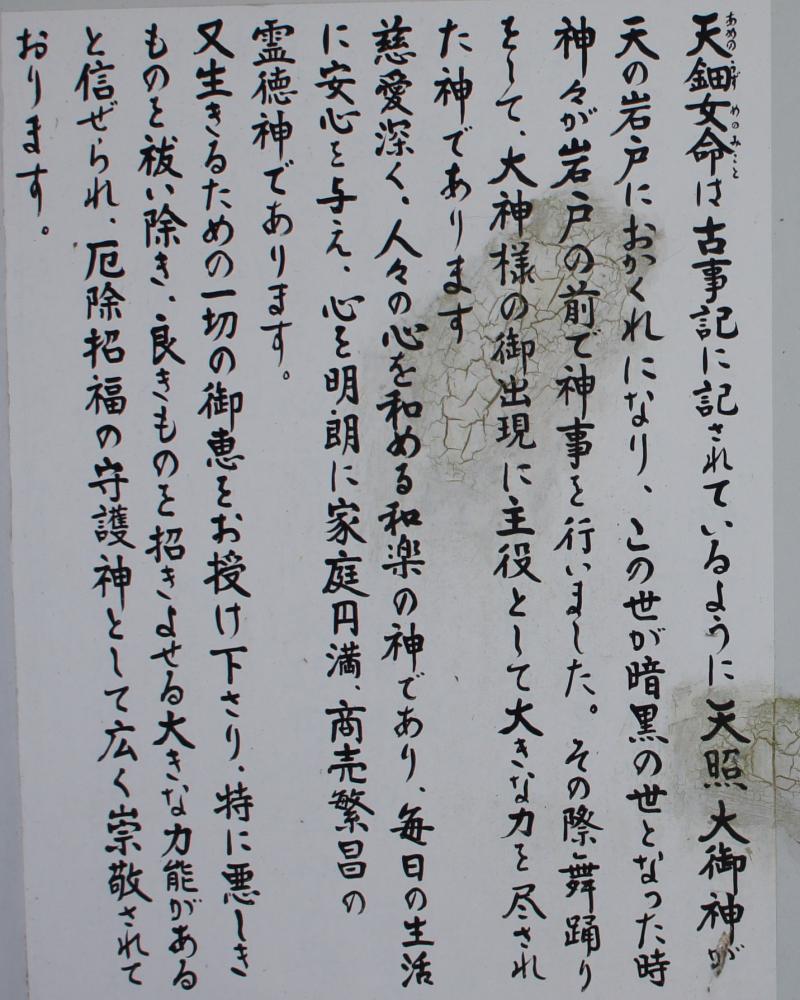 天鈿女命は古事記に記されているように天照大御神が
天の岩戸におかくれになり、この世が暗黒の世となった時
神々が岩戸の前で神事を行いました。その際舞踊り
をして、大神様の御出現に主役として大きな力を尽され
た神であります
慈愛深く、人々の心を和める和楽の神であり、毎日の生活
に安心を与え、心を明朗に家庭円満、商売繁昌の
霊徳神であります。
又生きるための一切の御恵をお授け下さり、特に悪しき
ものを祓い除き、良きものを招きよせる大きな力能がある
と信ぜられ、厄除招福の守護神として広く崇敬されて
おります。